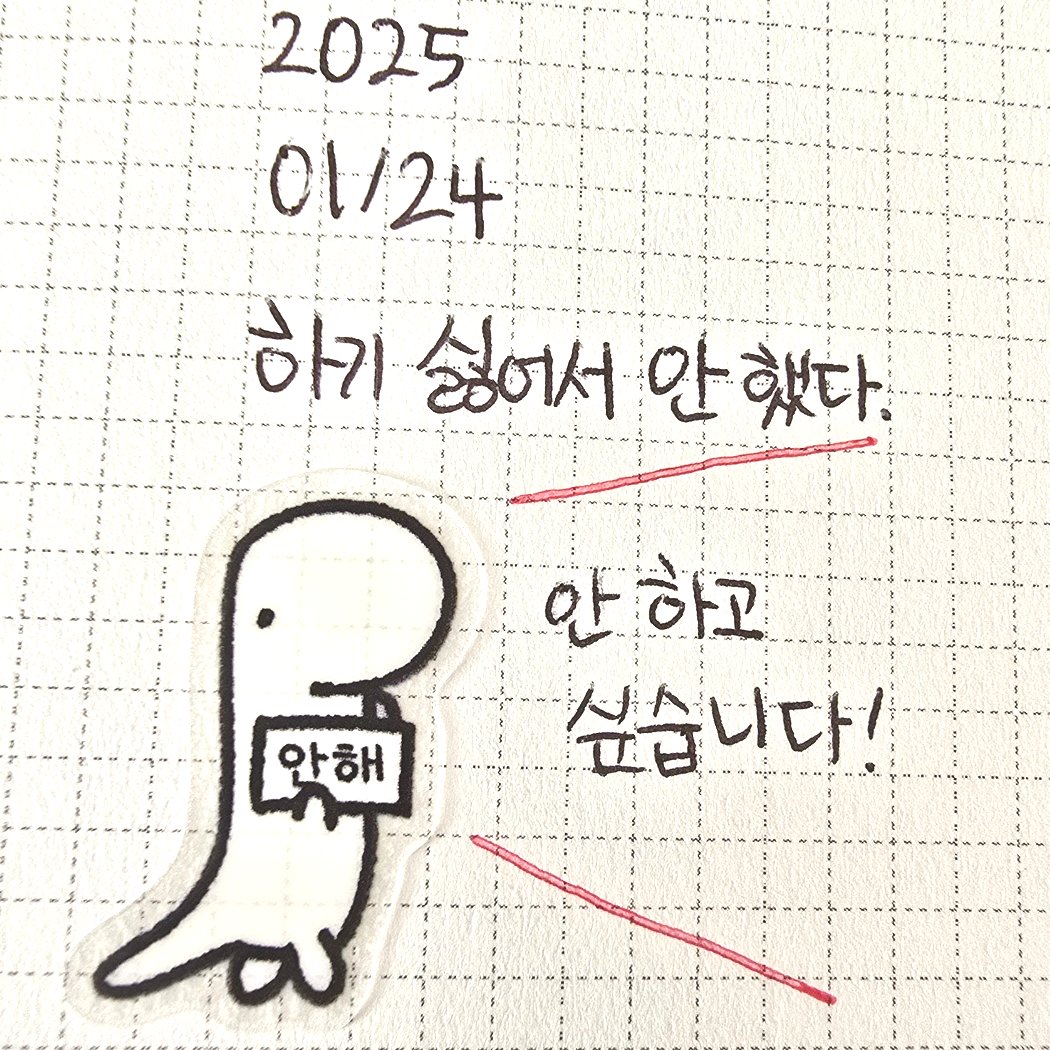 2025
01/24
하기 싫어서 안 했다.
안 하고
싶습니다!
안해